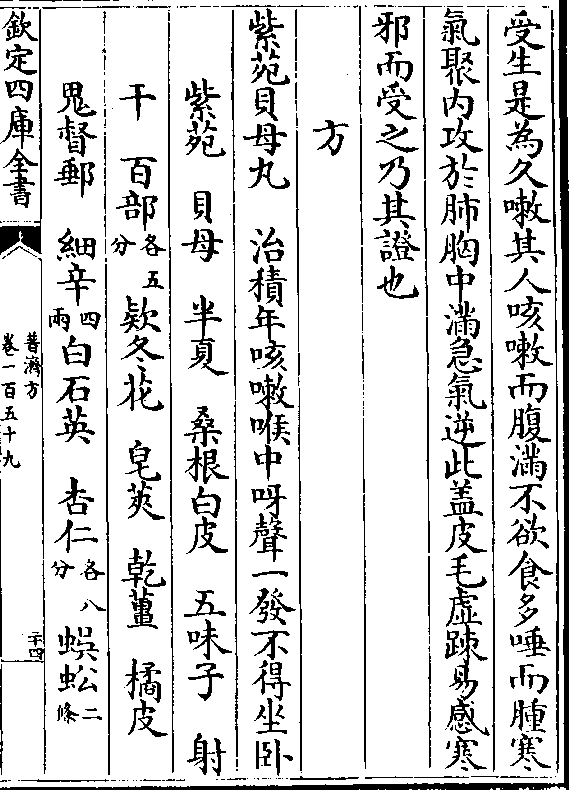 受生是為久嗽其人咳嗽而腹滿不欲食多唾而腫寒
氣聚内攻於肺胸中滿急氣逆此盖皮毛虚踈易感寒
邪而受之乃其證也
方
紫苑貝母丸　治積年咳嗽喉中呀聲一發不得坐卧
紫苑　貝母　半夏　桑根白皮　五味子　射
干　百部各五分　欵冬花　皂莢　乾薑　橘皮
鬼督郵　細辛四兩　白石英　杏仁各八分　蜈蚣二條
欽定四庫全書
普濟方
卷一百五十九
二十四